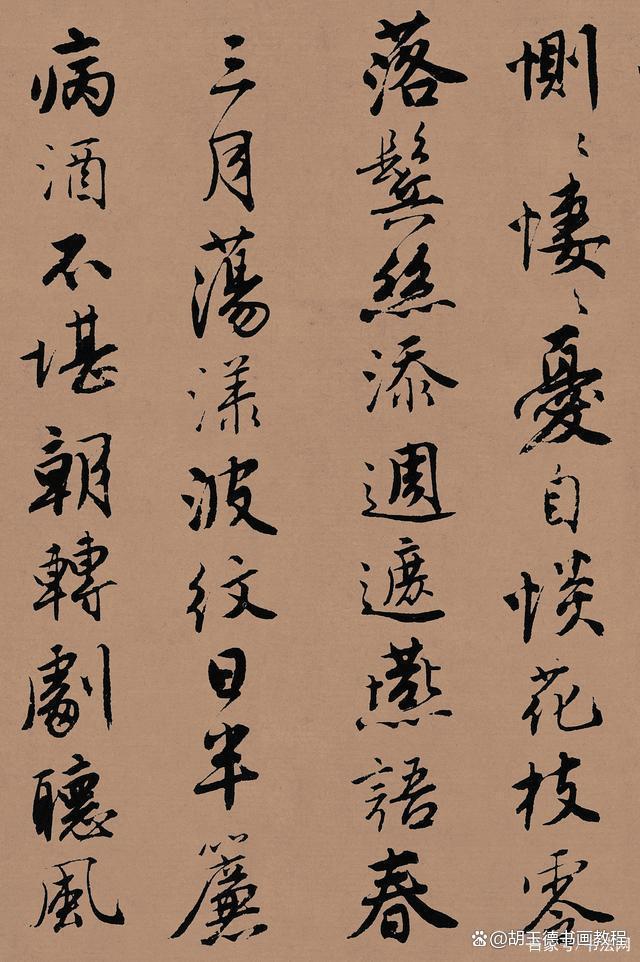 惻〻悽〻憂自惔花枝零
落鬢絲添週遮燕語春
三月蕩漾波紋日半簾
病酒不堪朝轉劇聽風
胡玉德书画教程
百家号/书法网